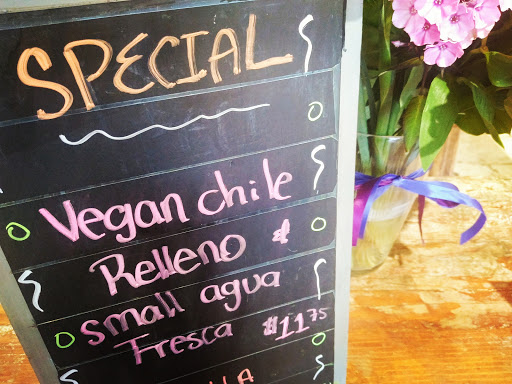 SPECIAL
Vegan chile
Relleno &
small agua
Fresca $11.75